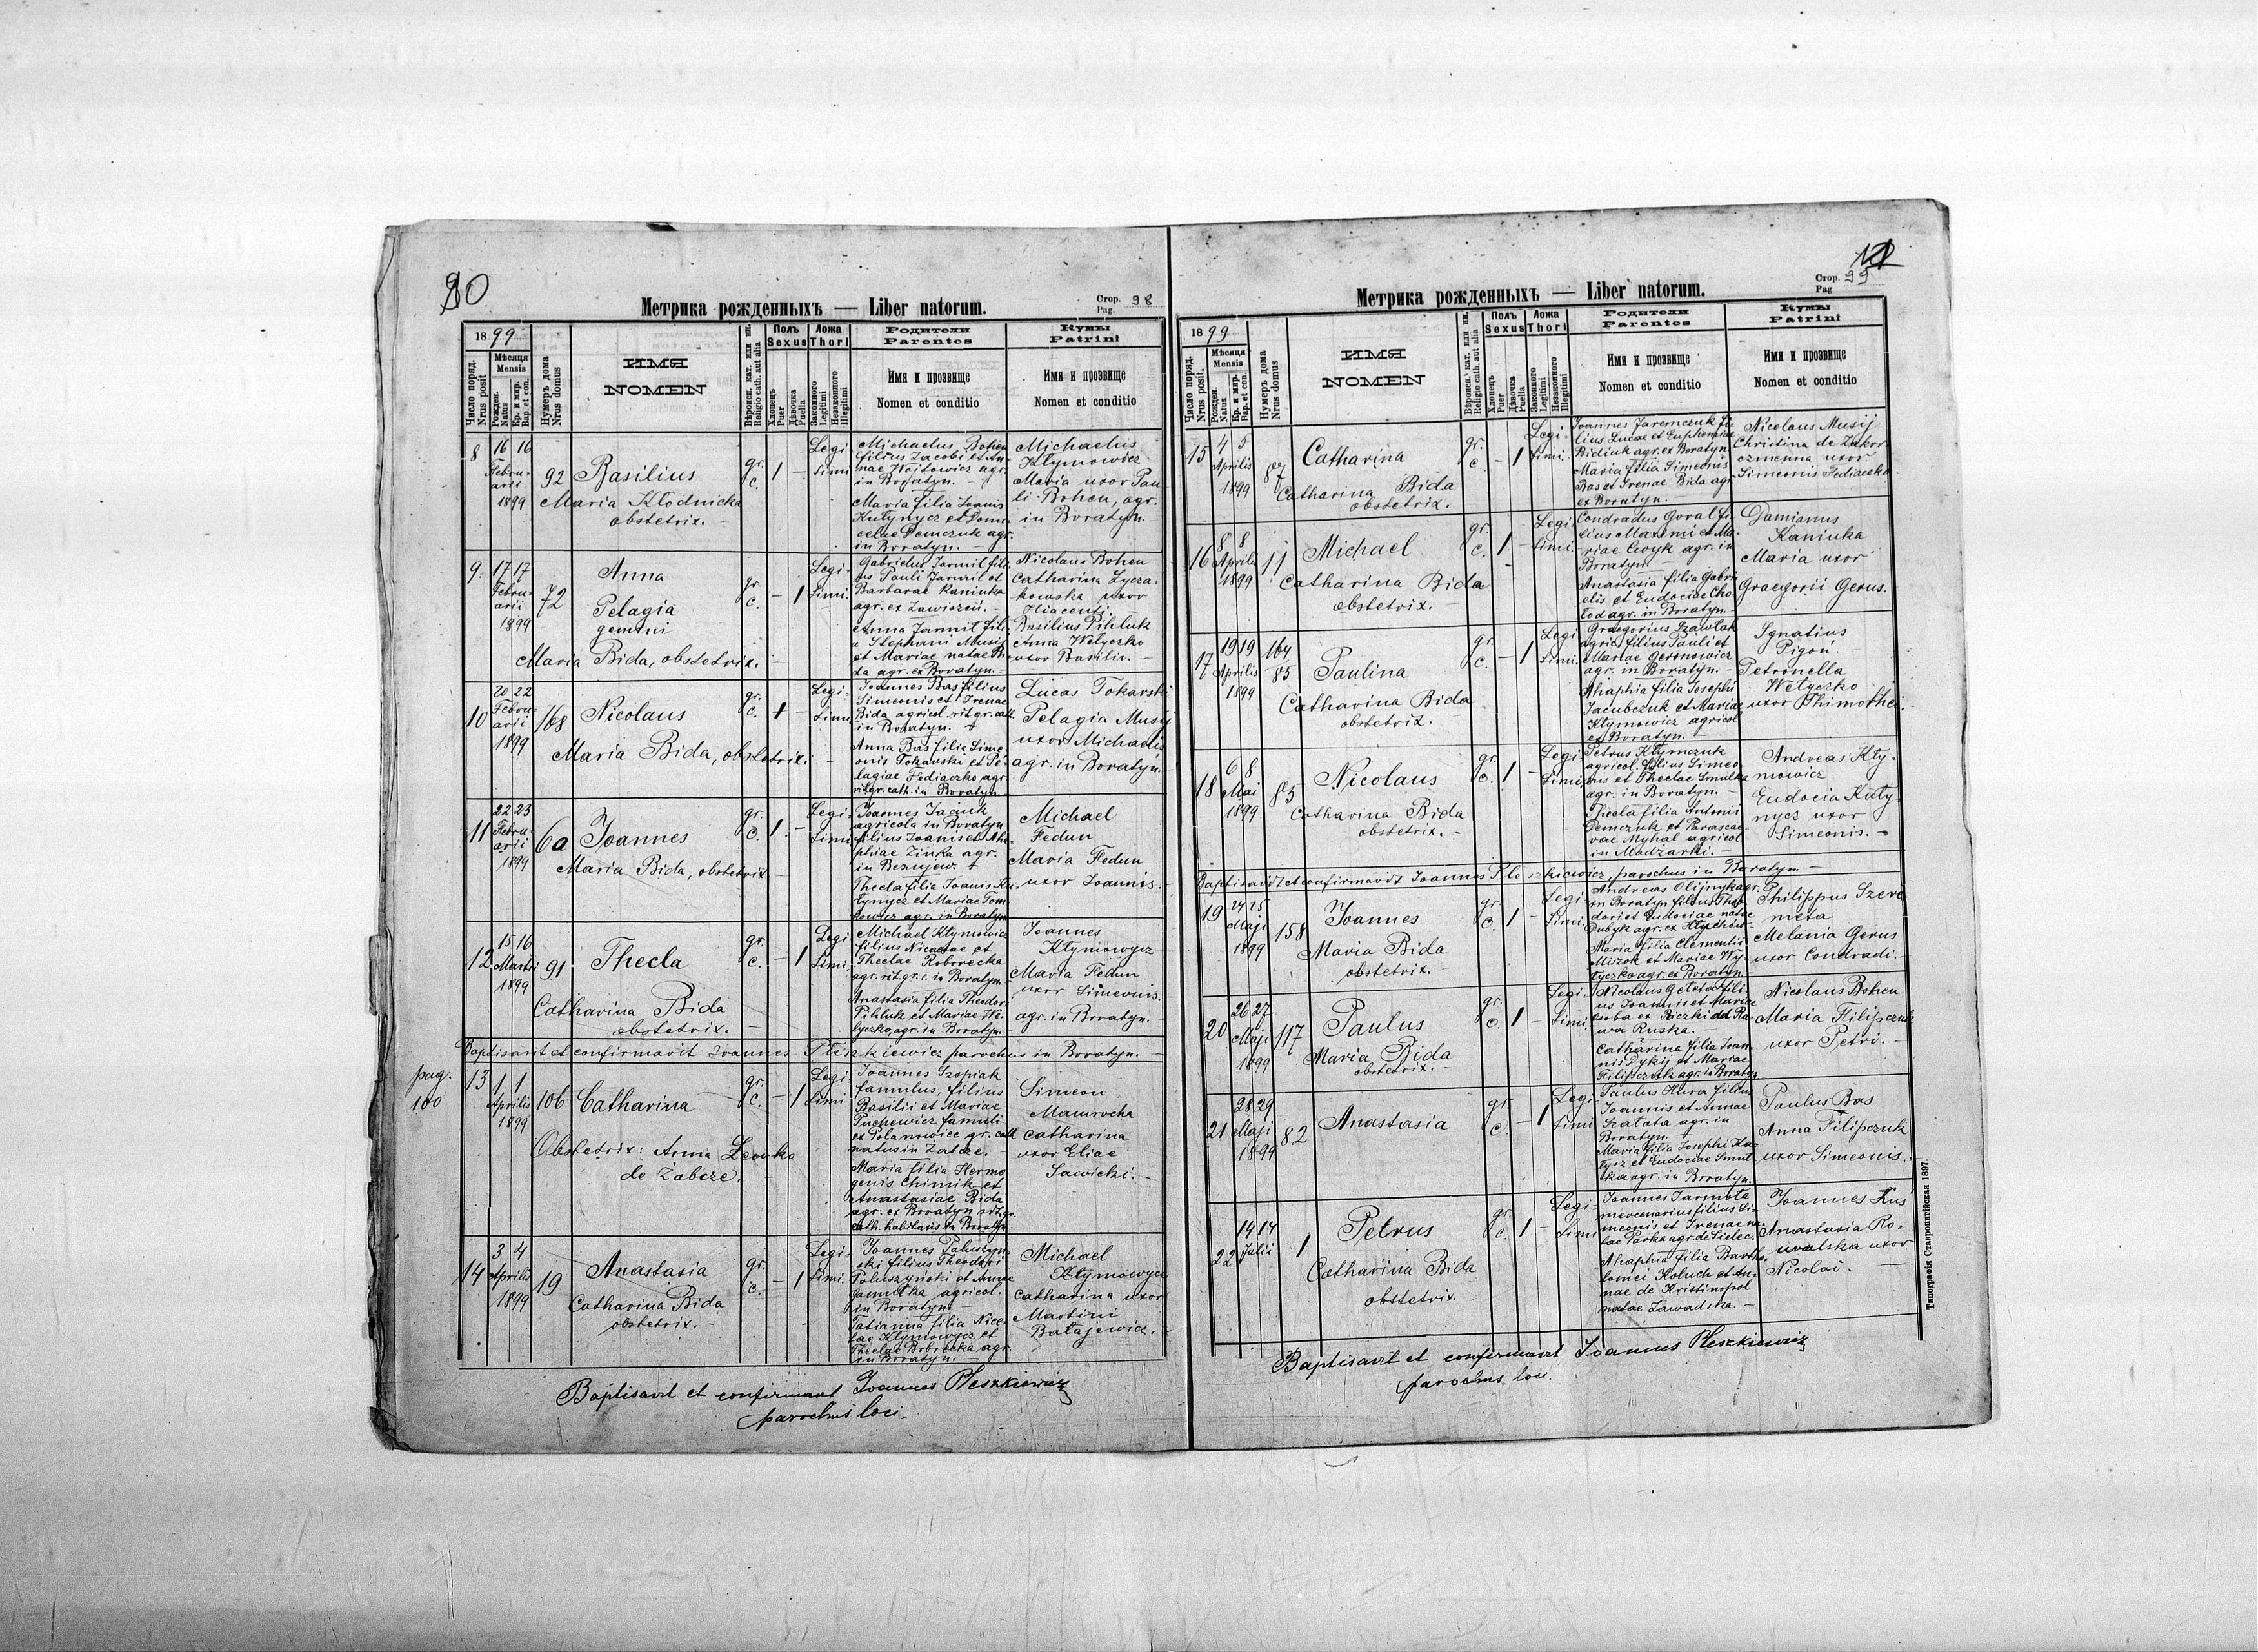 80
Метрика рожденныхъ — Liber natorum.
Стор. 98
Pag.
1899
Число поряд.
Nrus posit
Мѣсяця
Mensis
Рожден.
Natus
Кр. и мир.
Bap. et con.
Нумеръ дома
Nrus domus
ИМЯ
NOMEN
Вѣроисп. кат. или ин.
Religio cath. aut alia
Полъ
Sexus
Хлопецъ
Puer
Дѣвочка
Puella
Ложа
Thori
Законного
Legitimi
Незаконного
Illegitimi
Родители
Parentes
Имя и прозвище
Nomen et conditio
Кумы
Patrini
Имя и прозвище
Nomen et conditio
8
16 16
Febru-
arii
1899
92
Basilius
Maria Kłodnicka
obstetrix. -
gr.
c.
1 -
Legi-
timi
Michaelus Bohen
filius Jacobi et An-
nae Wojtowicz agr.
in Boratyn. -
Maria filia Joanis
Kułynycz et Domi-
celae Demczuk agr.
in Boratyn. -
Michaelus
Kłymowicz
Maria uxor Pau
li Bohen, agr.
in Boratyn.
9.
17 17
Febru-
arii
1899
72
Anna
Pelagia
gemini
Maria Bida, obstetrix. -
gr.
c.
- 1
Legi-
timi.
Gabrielus Jarmil fili-
us Pauli Jarmil et
Barbarae Kaniuka
agr. ex Zawiszeń. -
Anna Jarmil fili-
a Stephani Musij
et Mariae natae Bi-
da agr. ex Boratyn. -
Nicolaus Bohen
Catharina Łycza-
kowska uxor
Hiacenti. -
Basilius Pihluk
Anna Wełyczko
uxor Basilii. -
10
20 22
Febru-
arii
1899
168
Nicolaus
Maria Bida, obstetrix. -
gr.
c.
1 -
Legi-
timi
Joannes Bas filius
Simeonis et Irenae
Bida agricol. rit. gr. cath.
in Boratyn. +
Anna Bas filia Sime-
onis Tokarski et Pe-
lagiae Fediaczko agr.
rit. gr. cath. in Boratyn.
Lucas Tokarski
Pelagia Musij
uxor Michaelis
agr. in Boratyn.
11
22 23
Febru-
arii
1899
6a
Joannes
Maria Bida, obstetrix -
gr.
c.
1. -
Legi-
timi
Joannes Jaciuk
agricola in Boratyn
filius Joanis et Aha-
phiae Zinka agr.
in Bezujew. +
Thecla filia Joanis Ku-
łynycz et Mariae Tom-
kowicz agr. in Boratyn
Michael
Fedun
Maria Fedun
uxor Joannis. -
12
15 16
Martii
1899
91
Thecla
Catharina Bida
obstetrix. -
gr.
c.
- 1
Legi
timi.
Michael Kłymowicz
filius Nicetae et
Theclae Roborecka
agr. rit. gr. c. in Boratyn
Anastasia filia Theodori
Pihluk et Mariae We-
łyczko, agr. in Boratyn.
Joannes
Kłymowycz
Maria Fedun
uxor Simeonis.
agr. in Boratyn. -
Baptisavit et confirmavit Joannes Pleszkiewicz parochus in Boratyn. -
pag.
100
13
1 1
Aprilis
1899
106
Catharina
Obstetrix: Anna Lewko
de Zabcze.
gr.
c.
- 1
Legi-
timi
Joannes Szopiak
famulus, filius
Basilii et Mariae
Puchewicz famuli
ex Polanowice gr. cath
natus in Zabcze. -
Maria filia Hermo
genis Chimik et
Anastasiae Bida
agr. ex Boratyn rit. gr.
cath. habitans in Boratyn.
Simeon
Mamrocha
Catharina
uxor Eliae
Sawicki. -
14
3 4
Aprilis
1899
19
Anastasia
Catharina Bida
obstetrix. -
gr.
c.
- 1
Legi-
timi.
Joannes Paluszyn-
ski filius Theodori
Paluszyński et Annae
Jamułka agricol.
in Boratyn -
Tatianna filia Nice-
tae Kłymowycz et
Theclae Bobrecka agr.
in Boratyn. -
Michael
Kłymowycz
Catharina uxor
Martini
Batajewicz. -
Baptisavit et confirmavit Joannes Pleszkiewicz
parochus loci.
Метрика рожденныхъ — Liber natorum.
Стор. 99
Pag
1899
Число поряд.
Nrus posit.
Мѣсяця
Mensis
Рожден.
Natus
Кр. и мир.
Bap. et con.
Нумеръ дома
Nrus domus
ИМЯ
NOMEN
Вѣроисп. кат. или ин.
Religio cath. aut alia
Полъ
Sexus
Хлопецъ
Puer
Дѣвочка
Puella
Ложа
Thori
Законного
Legitimi
Незаконного
Illegitimi
Родители
Parentes
Имя и прозвище
Nomen et conditio
Кумы
Patrini
Имя и прозвище
Nomen et conditio
15
4 5
Aprilis
1899
87
Catharina
Catharina Bida
obstetrix. -
gr.
c.
- 1
Legi-
timi.
Joannes Jaremczuk fi-
lius Lucae et Euphemiae
Bidiuk agr. ex Boratyn
Maria filia Simeonis
Bas et Irenae Bida agr.
ex Boratyn.
Nicolaus Musij
Christina de Zakor-
czmenna uxor
Simeonis Fediaczko.
16
8 8
Aprilis
1899
11
Michael
Catharina Bida
obstetrix. -
gr.
c.
1 -
Legi-
timi.
Condradus Goral fi-
lius Maximi et Ma-
riae Cwyk agr. in
Boratyn. -
Anastasia filia Gabri-
elis et Eudociae Cho-
łod agr. in Boratyn. -
Damianus
Kaniuka
Maria uxor
Graegorii Gerus.
17
19 19
Aprilis
1899
164
85
Paulina
Catharina Bida
obstetrix.
gr.
c.
- 1
Legi
timi.
Graegorius Szawlak
agric. filius Pauli et
Mariae Geronowicz
agr. in Boratyn. -
Ahaphia filia Josephi
Jacubczuk et Mariae
Kłymowicz agricol
ex Boratyn. -
Ignatius
Pigoń.
Petronella
Wełyczko
uxor Thimothei.
18
6 8
Mai
1899
85
Nicolaus
Catharina Bida
obstetrix. -
gr.
c.
1 -
Legi-
timi
Petrus Kłymczuk
agricol. filius Simeo-
nis et Theclae Smulka
agr. in Boratyn. -
Thecla filia Antonii
Demczuk et Parascae-
vae Myhal agricol
in Madżarki. -
Andreas Kły-
mowicz
Eudocia Kuły-
nycz uxor
Simeonis. -
Baptisavit et confirmavit Joannes Pleszkiewicz, parochus in Boratyn -
19
24 25
Maji
1899
158
Joannes
Maria Bida
obstetrix. -
gr.
c.
1 -
Legi-
timi.
Andreas Olijnyk agr.
in Boratyn filius Theo-
dori et Eudociae natae
Dubyk agr. ex
Maria filia Clementii
Miszok et Mariae Wy-
łyczko agr. ex Boratyn.
Philippus Szere
meta
Melania Gerus
uxor Condradi. -
20
26 27
Maji
1899
117
Paulus
Maria Bida
obstetrix. -
gr.
c.
1 -
Legi-
timi.
Nicolaus Geleta fili-
us Joannis et Mariae
Osoba ex Riczki ad Ra-
wa Ruska. -
Catharina filia Joan-
nis Dykij et Mariae
Filipczuk agr. in Boratyn
Nicolaus Bohen
Maria Filipczuk
uxor Petri. -
21
28 29
Maji
1899
82
Anastasia
gr.
c.
- 1
Legi-
timi
Paulus Hura filius
Joannis et Annae
Szałata agr. in
Boratyn. +
Maria filia Josephi
et Eudociae Smul-
ka agr. in Boratyn.
Paulus Bas
Anna Filipczuk
uxor Simeonis. -
22
14 14
Julii
1
Petrus
Catharina Bida
obstetrix. -
gr.
c.
1 -
Legi-
timi
Joannes Jarmola
mercenarius filius Si-
meonis et Irenae na-
tae Parka agr. de Sielec.
Ahaphia filia Bartho-
lomei Koluch et An-
nae de Kristinopol
natae Zawadska. -
Joannes Kus
Anastasia Ro-
uxor
Nicolai. -
Baptisavit et confirmavit Joannes Pleszkiewicz
parochus loci.
Типографія Ставропигійская 1897.